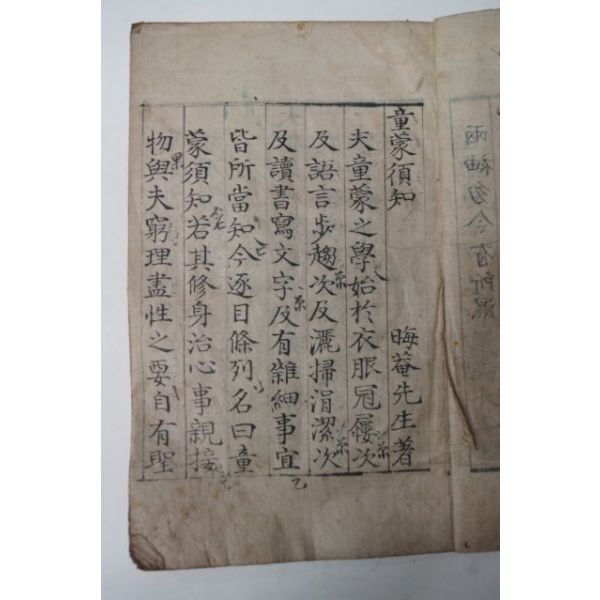 童蒙須知 晦菴先生著
夫童蒙之學始於衣服冠屨次
及語言步趨次及灑掃涓潔次
及讀書寫文字及有雜細事宜
皆所當知今逐目條列名曰童
蒙須知若其修身治心事親接
物與夫窮理盡性之要自有聖
兩袖勿令有所濕